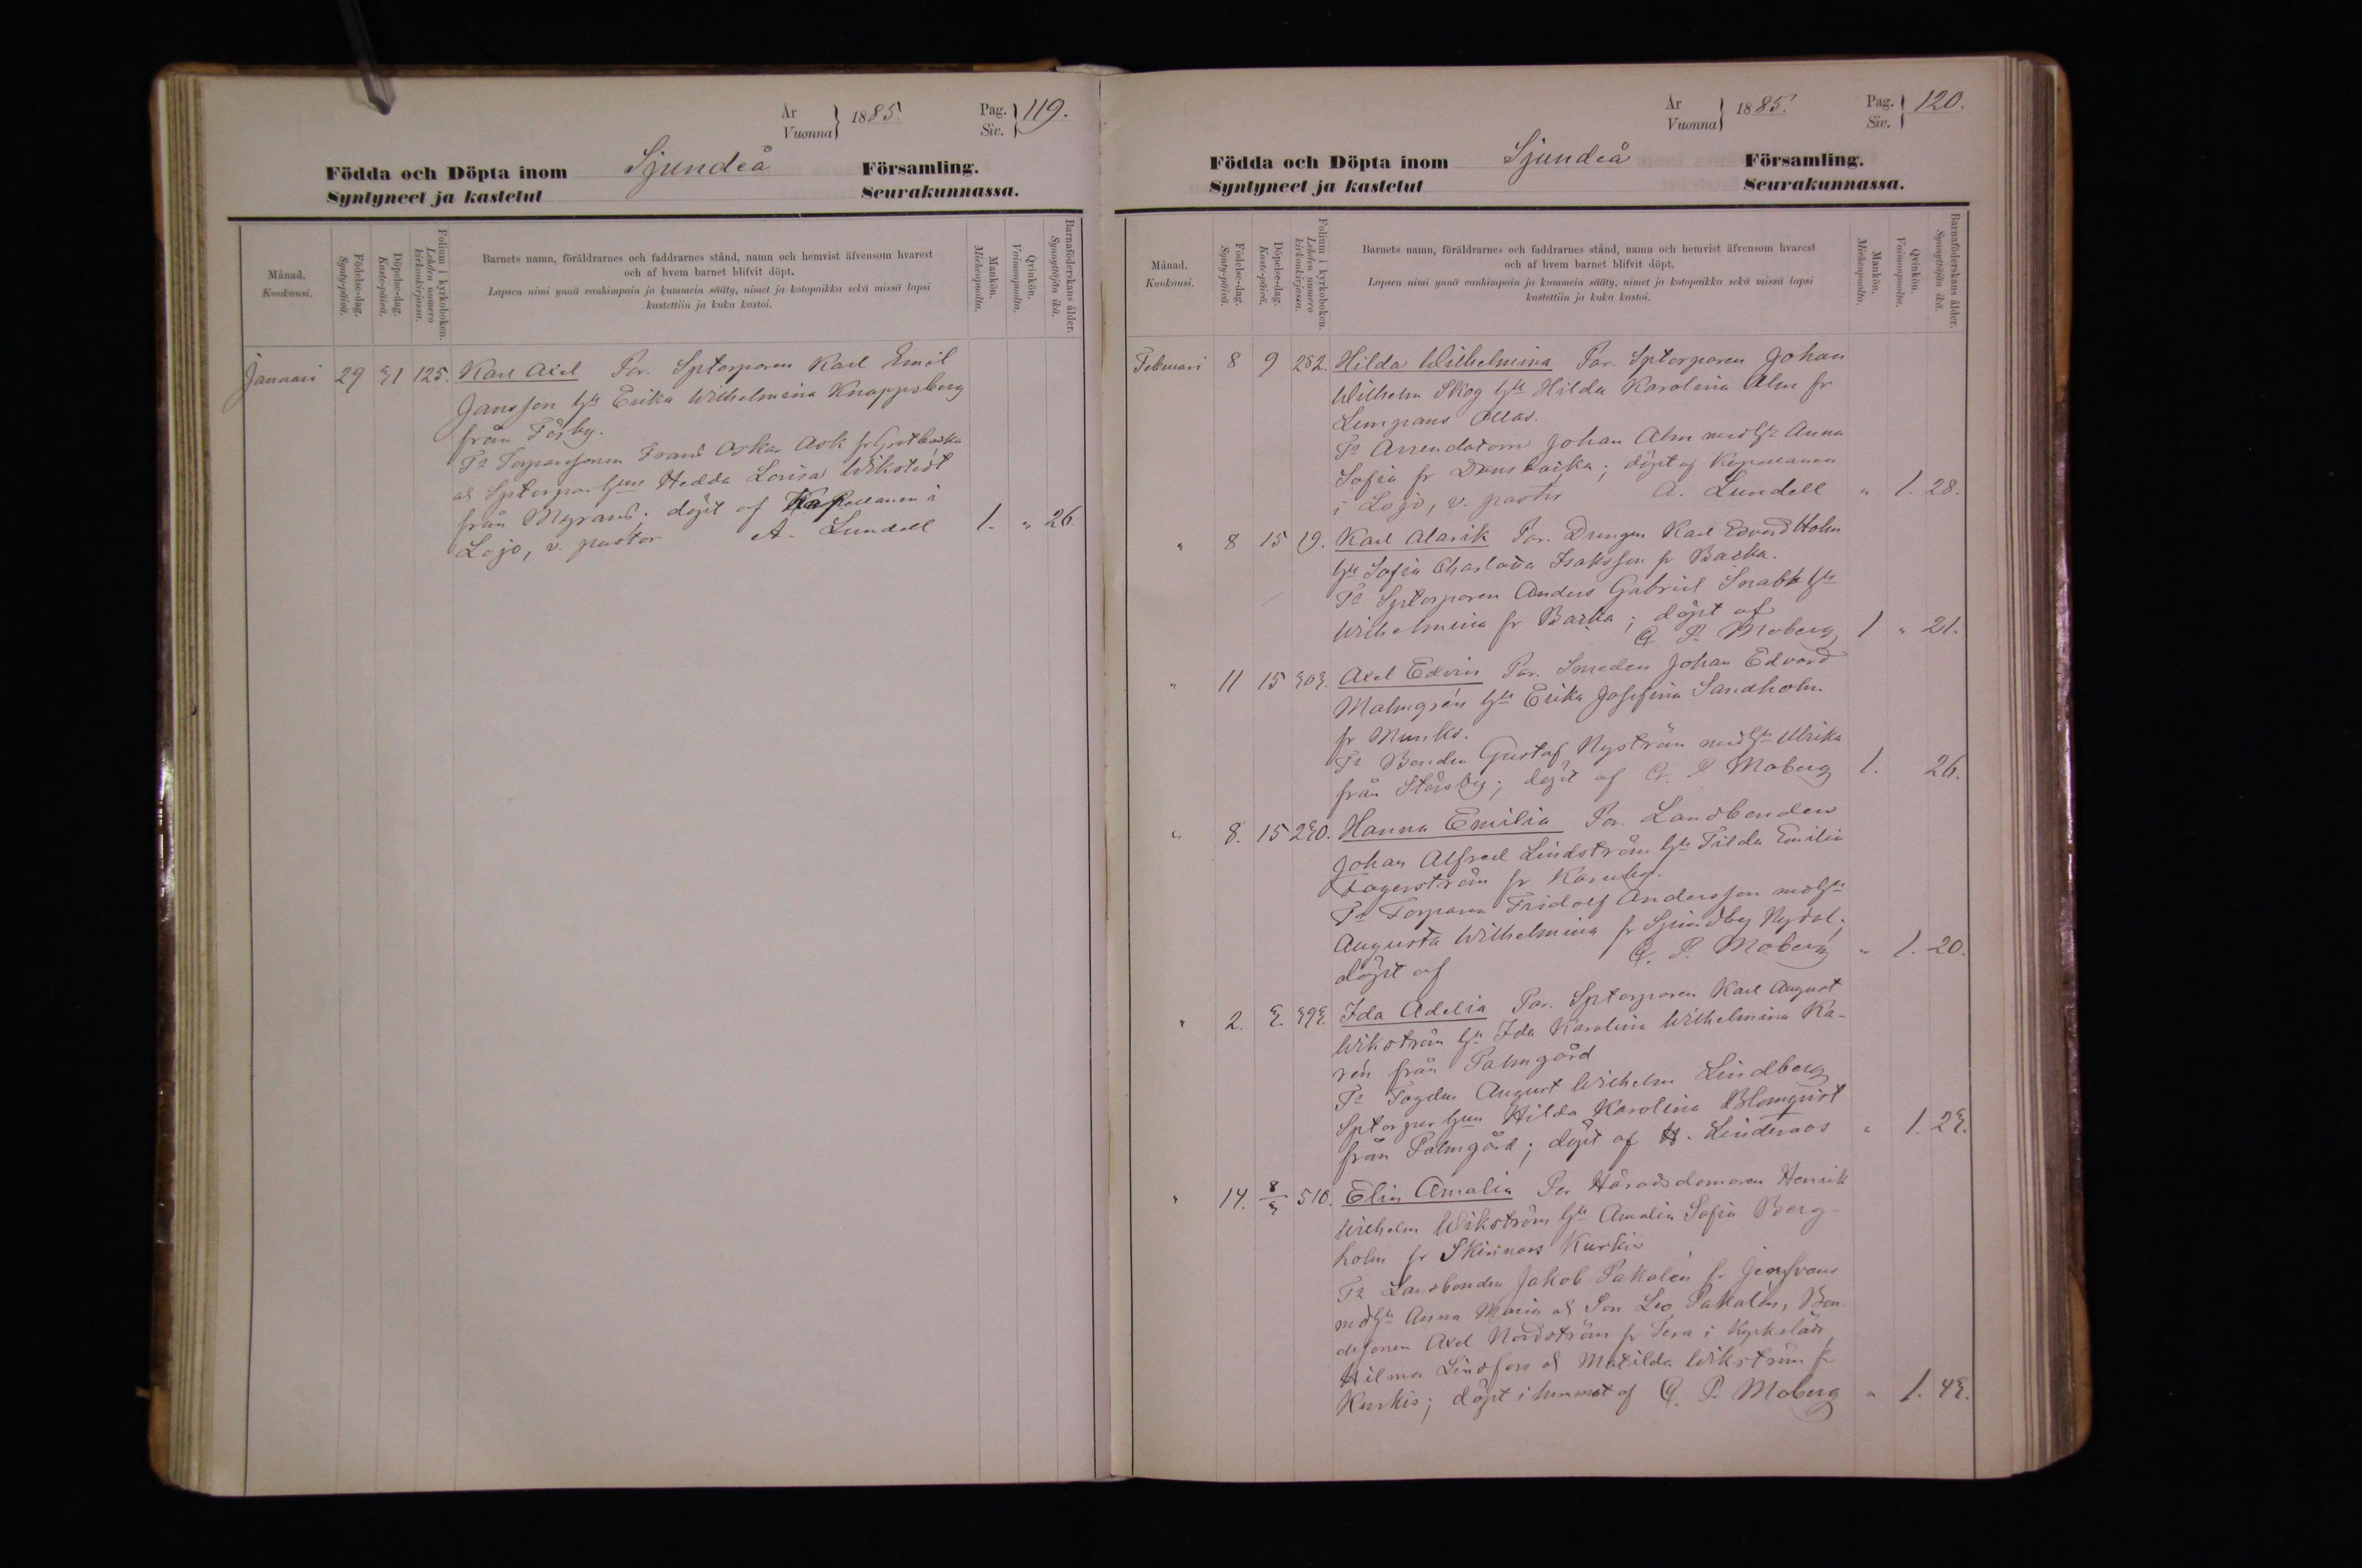 År
Vuonna } 1885. Pag.
Siv. } 119.
Födda och Döpta inom Sjundeå Församling.
Syntyneet ja kastetut Seurakunnassa.
Månad.
Kuukausi.
Födelse-dag.
Synty-päivä.
Döpelse-dag.
Kaste-päivä.
Folium i kyrkoboken.
Lehden numero kirkonkirjassa.
Barnets namn, föräldrarnes och faddrarnes stånd, namn och hemvist äfvensom hvarest
och af hvem barnet blifvit döpt.
Lapsen nimi ynnä vanhimpain ja kummein sääty, nimet ja kotopaikka sekä missä lapsi
kastettiin ja kuka kastoi.
Mankön.
Miehenpuolta.
Qvinkön.
Vaimonpuolta.
Barnaföderskans ålder.
Synnyttäjän ikä.
Januari 29 31 125. Karl Axel För. Sptorparen Karl Emil
Jansson hu Erika Wilhelmina Knappsberg
från
Fr Torparesonen Frans Oskar Ask fr
o Sptorpar hun Hedda Lovisa Wikstedt
från Myrans; döpt af Kapellanen i
Lojo, v. pastor A. Lundell 1. " 26.
År
Vuonna } 1885. Pag.
Siv. } 120.
Födda och Döpta inom Sjundeå Församling.
Syntyneet ja kastetut Seurakunnassa.
Månad.
Kuukausi.
Födelse-dag.
Synty-päivä.
Döpelse-dag.
Kaste-päivä.
Folium i kyrkoboken.
Lehden numero kirkonkirjassa.
Barnets namn, föräldrarnes och faddrarnes stånd, namn och hemvist äfvensom hvarest
och af hvem barnet blifvit döpt.
Lapsen nimi ynnä vanhimpain ja kummein sääty, nimet ja kotopaikka sekä missä lapsi
kastettiin ja kuka kastoi.
Mankön.
Miehenpuolta.
Qvinkön.
Vaimonpuolta.
Barnaföderskans ålder.
Synnyttäjän ikä.
Februari 8 9 252. Hilda Wilhelmina För. Sptorparen Johan
Wilhelm Skog hu Hilda Karolina Alm fr
Lempans
Fr Arrendatorn Johan Alm med hu Anna
Sofia fr Dansbacka; döpt af Kapellanen
i Lojo, v. pastor A. Lundell " 1. 28.
" 8 15 19. Karl Alarik För. Drengen Karl Edvard Holm
hu Sofia Charlotta Isaksson fr Backa.
Fr Sptorparen Anders Gabriel Snabb hu
Wilhelmina fr Backa; döpt af
G. P. Moberg 1 " 21.
" 11 15 303. Axel Edvin För. Smeden Johan Edvard
Malmgrén hu Erika Josefina Sandholm
fr Munks.
Fr Bonden Gustaf Nyström med hu Ulrika
från Störsby; döpt af G. P. Moberg 1. 26.
" 8. 15 230. Hanna Emilia För. Landbonden
Johan Alfred Lindström hu Tilda Emilia
Fagerström fr Karuby.
Fr Torparen Fridolf Andersson med hu
Augusta Wilhelmina fr Sjundby Nydal;
döpt af G. P. Moberg " 1. 20.
" 2. 3. 393. Ida Adelia För. Sptorparen Karl August
Wikström hu Ida Karolina Wilhelmina Ka-
rén från Palmgård
Fr Fogden August Wilhelm Lindberg
Sptorpar hun Hilda Karolina Blomqvist
från Palmgård; döpt af H. Linderoos " 1. 23.
" 14. 8/3 510. Elin Amalia För Häradsdomaren Henrik
Wilhelm Wikström hu Amalia Sofia Berg-
holm fr Skinnars Kurkis
Fr Landbonden Jakob Pakalén fr
med hu Anna Maria o Son Leo Pakalén, Bon-
desonen Axel Nordström fr i Kyrkslätt,
Hilma Lindfors o Matilda Wikström fr
Kurkis; döpt i hemmet af G. P. Moberg " 1. 43.